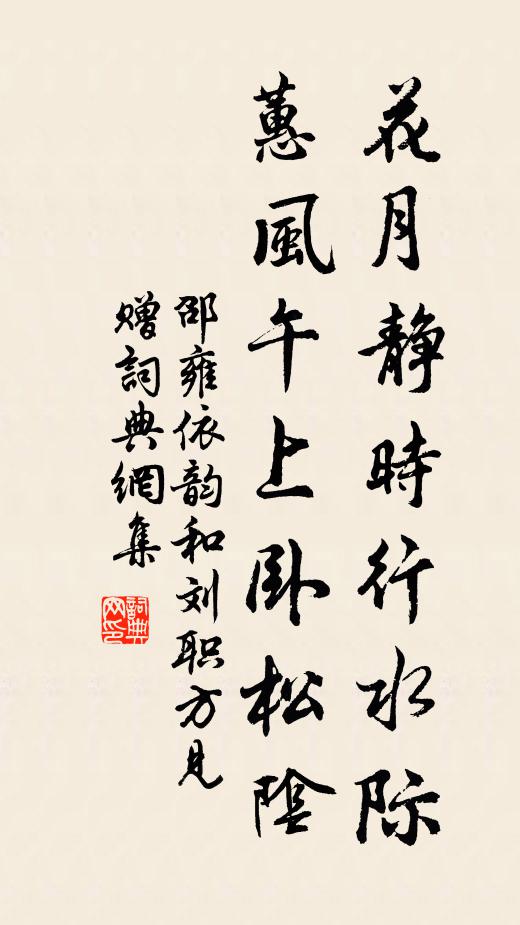 花月静時行水际
蕙風午上卧松陰
邵雍依韵和刘职方见
赠詞典網集
詞典
网印